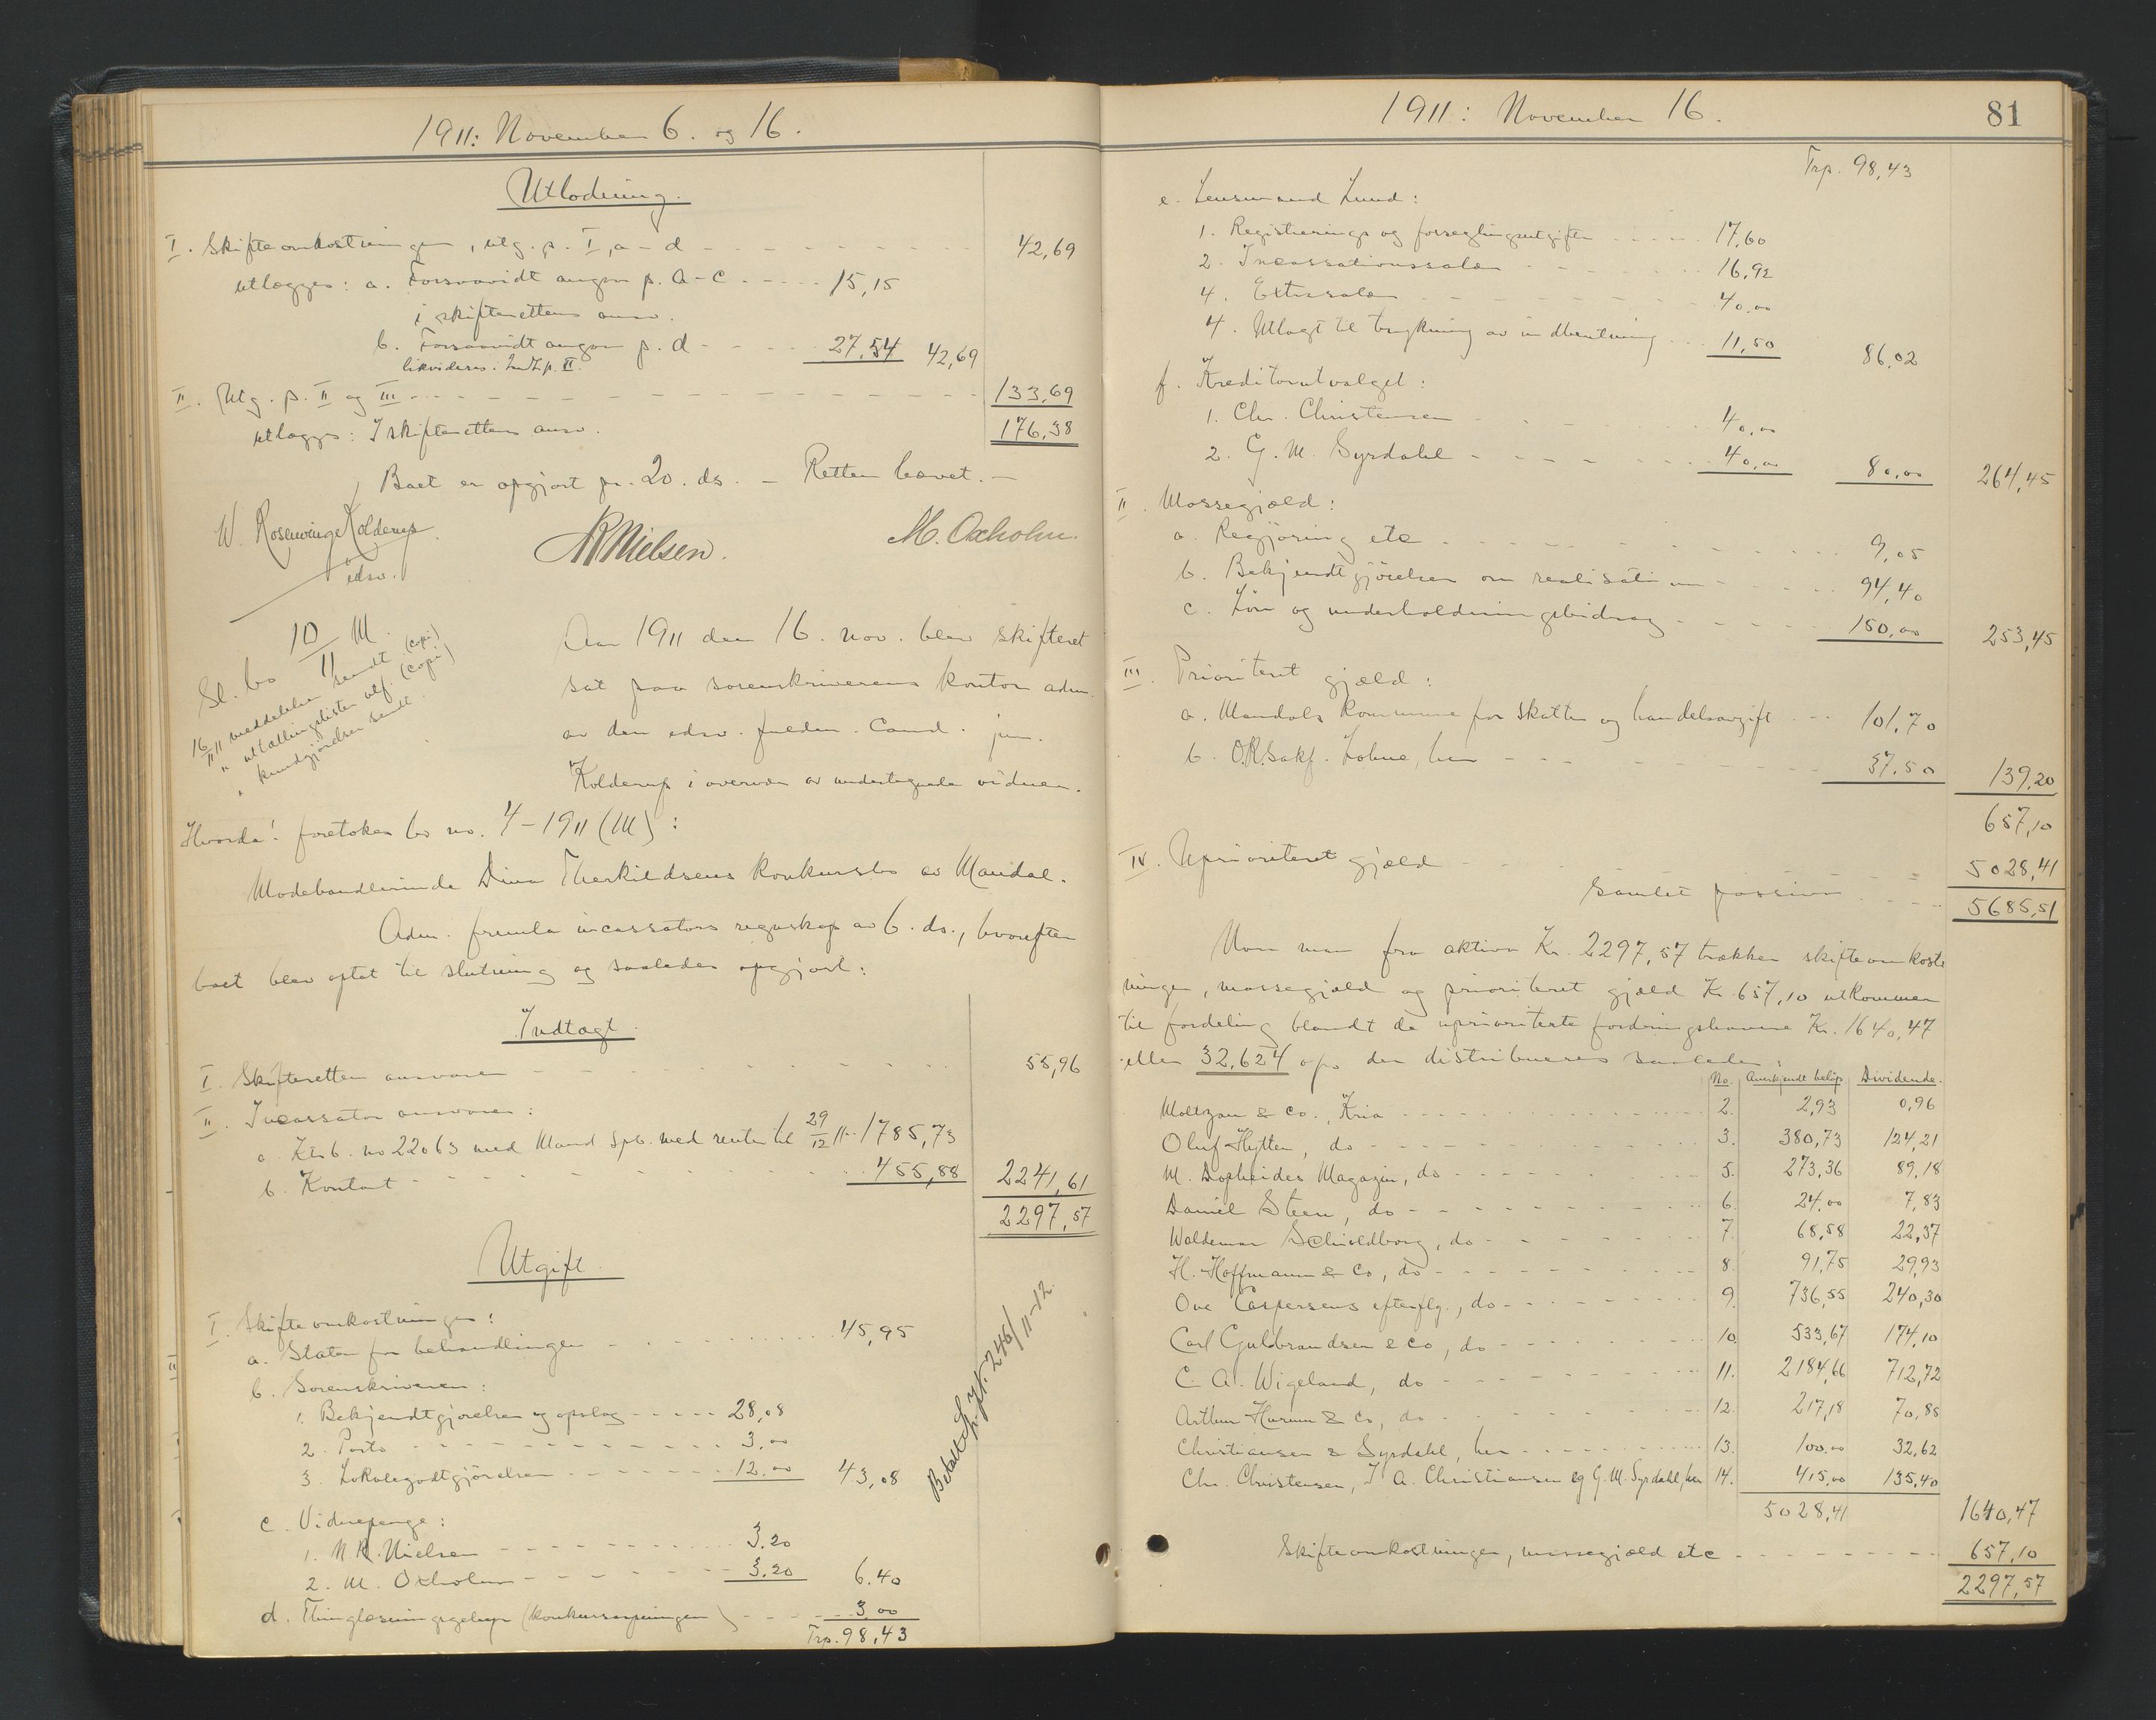 1911: November 6. og 16.
Utlodning.
I. Skifteomkostninger, utg. p. I, a-d 42,69
utlægges: a. Forsaavidt angaar p. a-c 15,15
i skifterettens ansv.
b. Forsaavidt angaar p. d 27,54 42,69
likvideres. Indt. p. II.
II. Utg. p. II og III 133,69
utlægges: I skifterettens ansv. 176,38
Boet er opgjort pr. 20. ds. – Retten hævet. –
W. Rosenvinge Kolderup
edsv.
NRNielsen.
M. Oxholm.
Sl. bo 10/11 M.
16/11 11 meddelelse sendt (copi)
" utlodningslisten utf. (copi)
" kundgjørelse sendt.
Aar 1911 den 16. nov. blev skifteret
sat paa sorenskriverens kontor adm.
av den edsv. fuldm. cand. jur.
Kolderup i overvær av undertegnede vidner.
Hvorda! foretokes bo no. 4-1911 (M):
Modehandlerinde Dina Therkildsens konkursbo av Mandal.
Adm. fremla incassators regnskap av 6. ds., hvorefter
boet blev optat til slutning og saaledes opgjort:
Indtægt.
I. Skifteretten ansvarer 55,96
II. Incassator ansvarer:
a. Ktrb. no 22063 med Mand. Spb. med renter til 29/12 11 1785,73
b. Kontant 455,88 2241,61
2297,57
Utgift.
I. Skifteomkostninger:
a. Staten for behandlingen 45,95
b. Sorenskriveren:
1. Bekjendtgjørelser og opslag 28,08
2. Porto 3,00
3. Lokalegodtgjørelsen 12,00 43,08
c. Vidnepenge:
1. N R. Nielsen 3.20
2. M. Oxholm 3.20 6.40
d. Thinglæsningsgebyr (konkursaapningen) 3,00
Trp. 98,43
1911: November 16.
81
Trp. 98,43
e. Lensmand Lund:
1. Registrerings og forseglingsutgifter 17,60
2. Incassationssalær 16,92
4. Extrasalær 40,00
4. Utlagt til trykning av indberetning 11,50 86,02
f. Kreditorutvalget:
1. Chr. Christensen 40,00
2. G. M. Syrdahl 40,00 80,00 264,45
II. Massegjæld:
a. Regjøring etc 9,05
b. Bekjendtgjørelser om realisation 94,40
c. Løn og underholdningsbidrag 150,00 253,45
III. Prioritert gjæld:
a. Mandals kommune for skatter og handelsavgift 101,70
b. O.R.Sakf. Lohne, her 37,50 139,20
657,10
IV. Uprioritert gjæld 5028,41
Samlet passiva 5685,51
Naar man fra aktiva Kr. 2297,57 trækker skifteomkost-
ninger, massegjæld og prioritert gjæld Kr. 657,10 utkommer
til fordeling blandt de uprioriterte fordringshavere Kr. 1640,47
eller 32,624 o/o der distribueres saaledes:
No. Anerkjendt beløp Dividende.
Moltzau & Co., Kria 2. 2,93 0,96
Oluf Hytten, do 3. 380,73 124,21
M. Dopheides Magazin, do 5. 273,36 89,18
Daniel Steen, do 6. 24,00 7,83
Waldemar Schieldborg, do 7. 68,58 22,37
H. Hoffmann & Co, do 8. 91,75 29,93
Ove Caspersens efterflg., do 9. 736,55 240,30
Carl Gulbrandsen & Co, do 10. 533,67 174,10
C. A. Wigeland, do 11. 2184,66 712,72
Arthur Hurum & Co, do 12. 217,18 70,85
Christiansen & Syrdahl, her 13. 100,00 32,62
Chr. Christensen, I A. Christiansen og G. M. Syrdahl, her 14. 415,00 135,40
5028,41 1640,47
Skifteomkostninger, massegjæld etc 657,10
2297,57